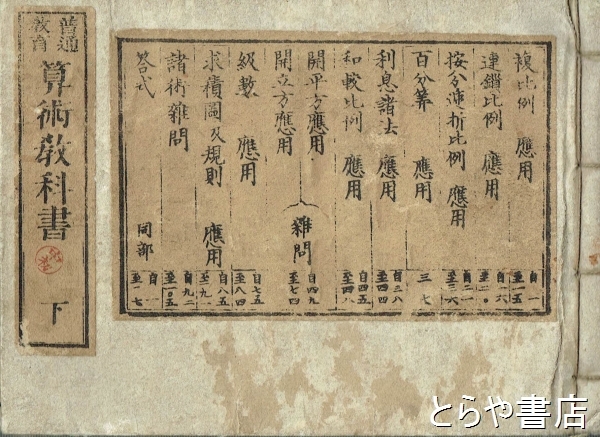 普通
教育
算術教科書
下
複比例 應用 自一 至一五
連鎖比例 應用 自一六 至二〇
按分遞折比例 應用 自二一 至三六
百分算 應用 三七
利息諸法 應用 自三八 至四四
和較比例 應用 自四五 至四八
開平方應用
開立方應用
雜問 自四九 至七四
級數 應用 自七五 至八四
求積圖及規則 應用 自八五 至九一
諸術雜問 自九二 至一〇五
答式 同部 自一 至一七
とらや書店